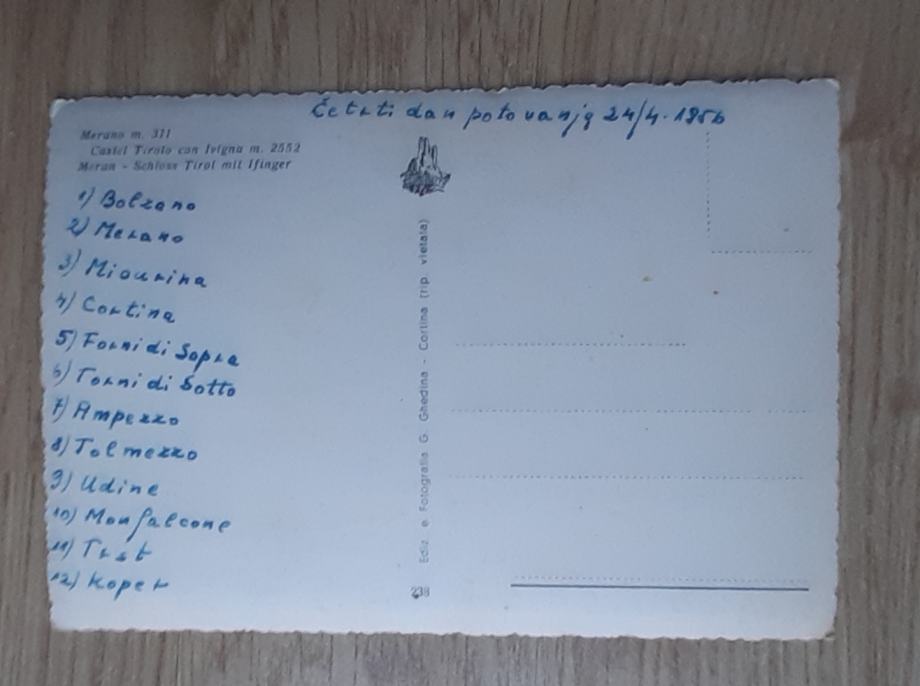 Četrti dan potovanja 24/4-1956
Merano m. 311
Castel Tirolo con Ivigna m. 2552
Meran - Schloss Tirol mit Ifinger
1) Bolzano
2) Merano
3) Miourina
4) Cortina
5) Forni di Sopra
6) Forni di Sotto
7) Ampezzo
8) Tolmezzo
9) Udine
10) Monfalcone
11) Trst
12) Koper
Ediz. e Fotografia G. Ghedina - Cortina (rip. vietata)
238